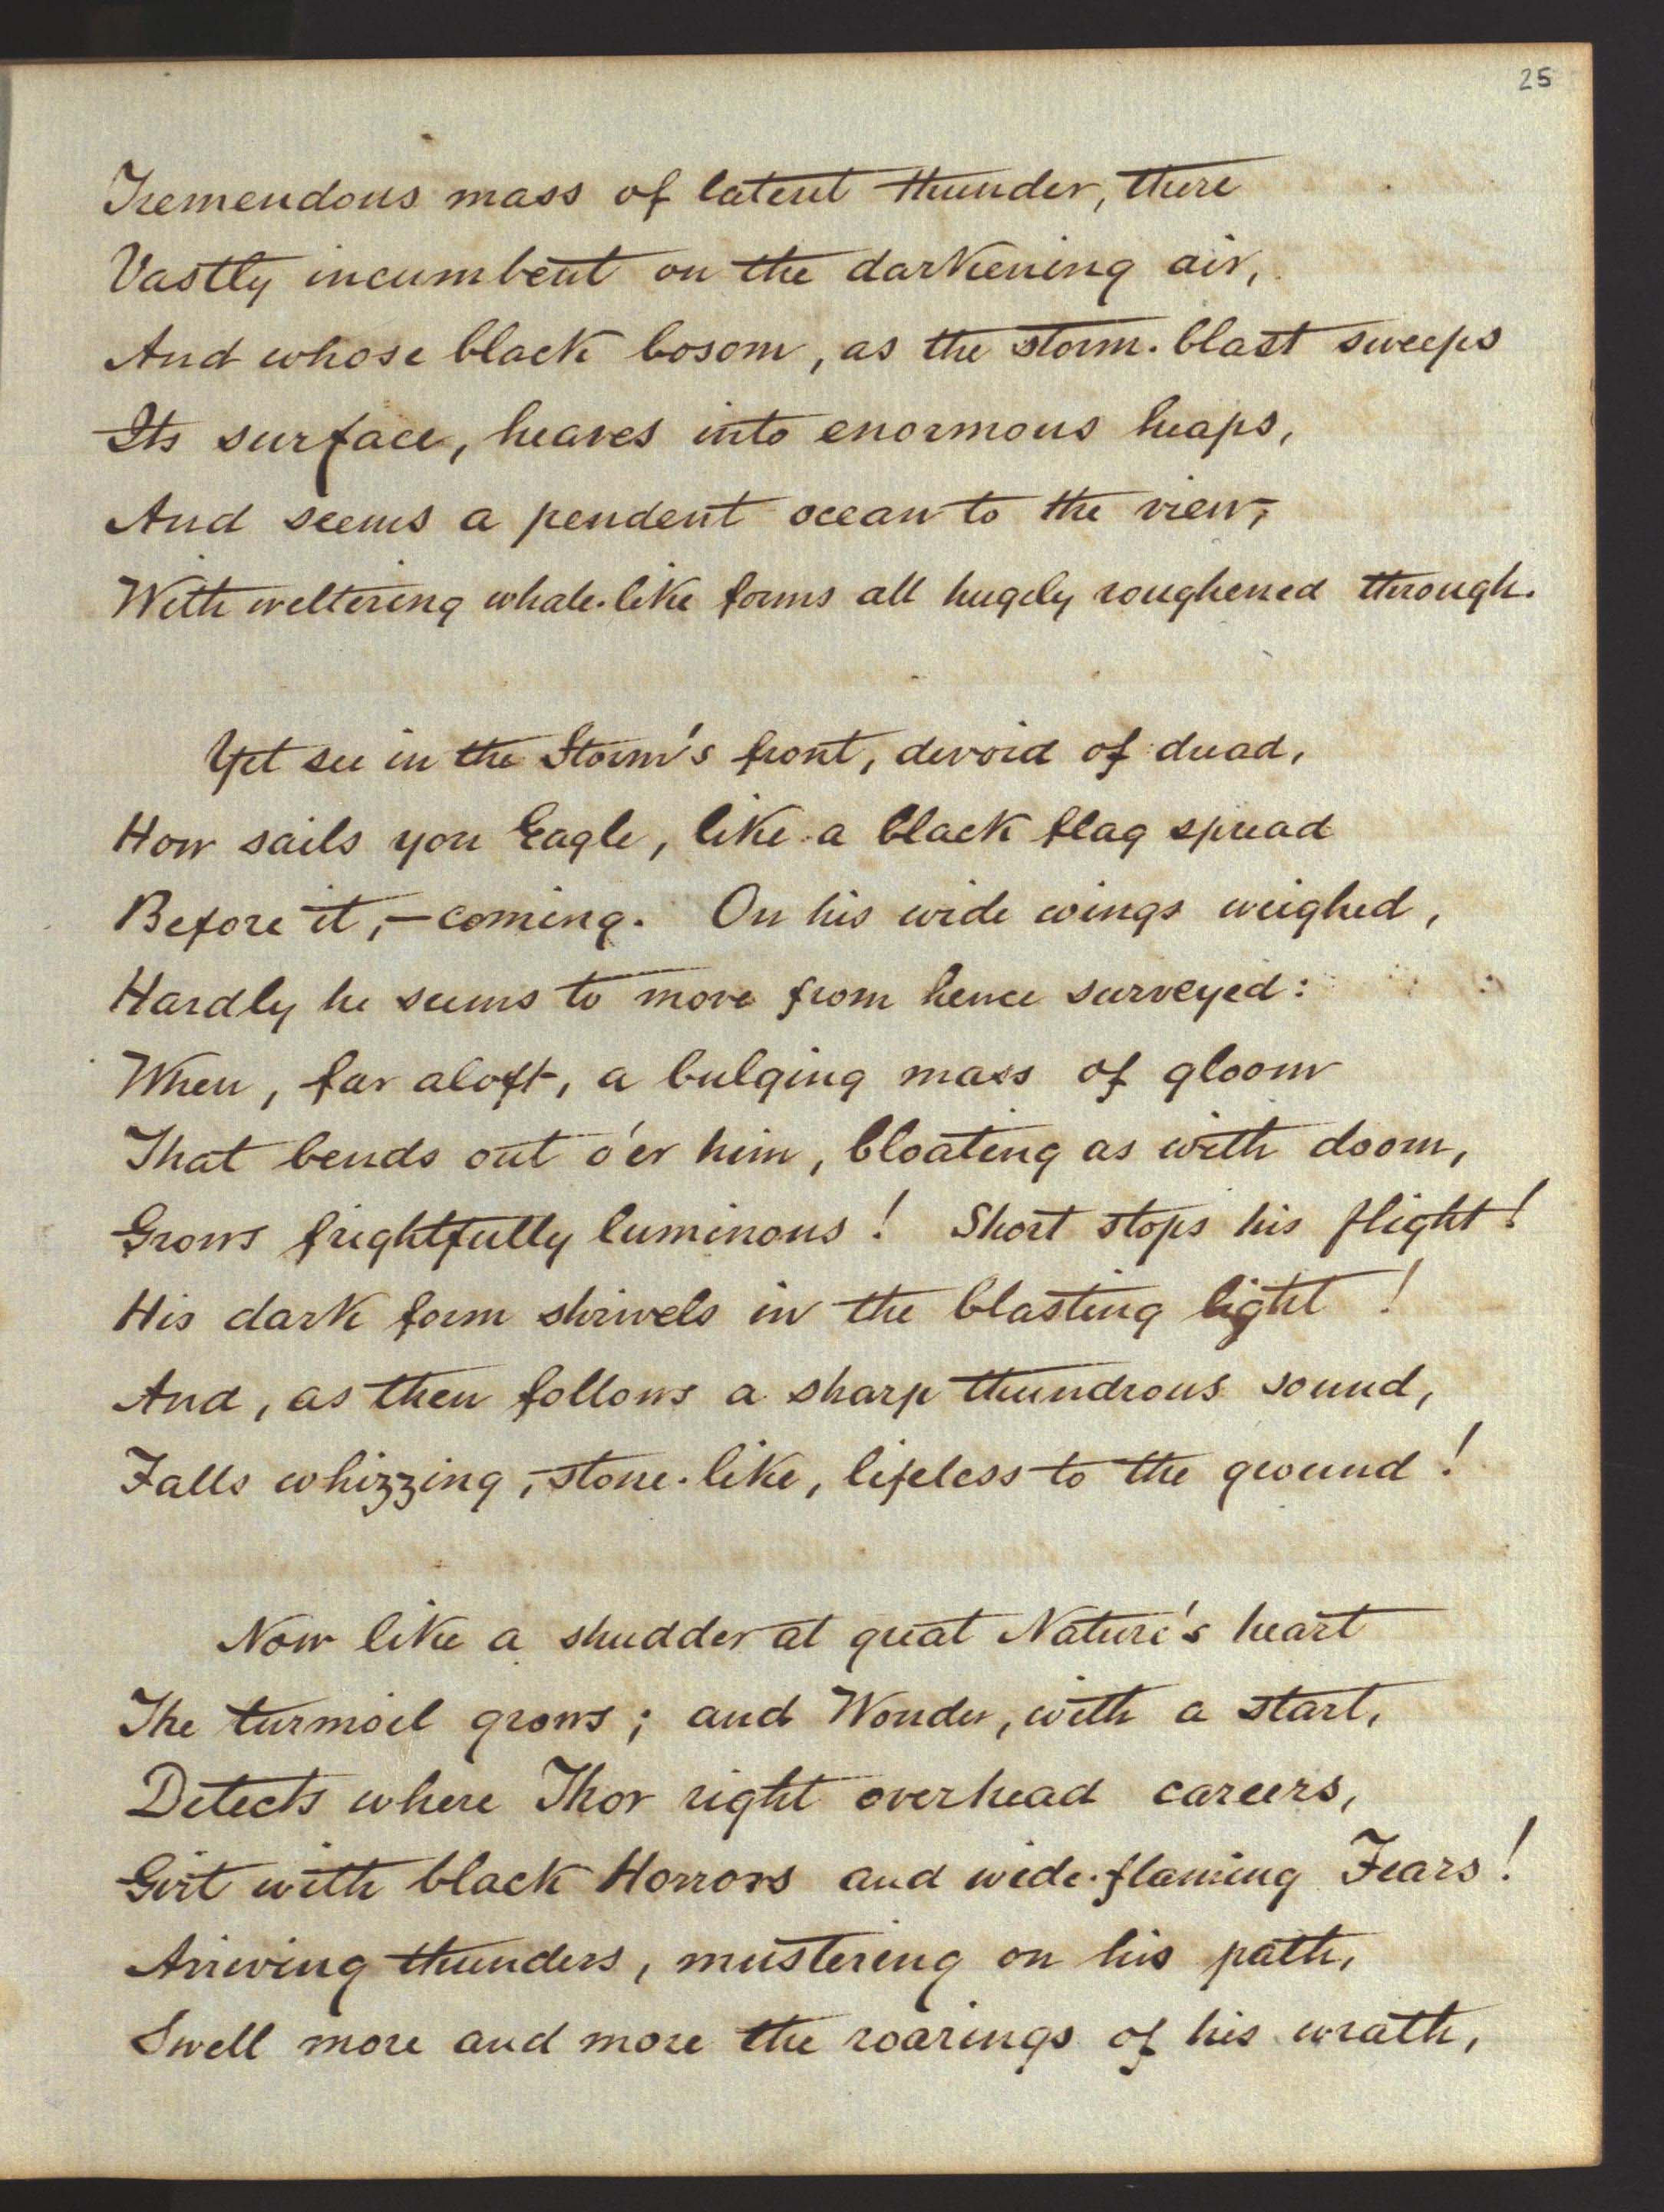 25
Tremendous mass of latent thunder, there
Vastly incumbent on the darkening air,
And whose black bosom, as the storm-blast sweeps
Its surface, heaves into enormous heaps,
And seems a pendent ocean to the view,
With weltering whale-like forms all hugely roughened through.
Yet see in the Storm's front, devoid of dread,
How sails yon Eagle, like a black flag spread
Before it,—coming. On his wide wings weighed,
Hardly he seems to move from hence surveyed:
When, far aloft, a bulging mass of gloom
That bends out o'er him, bloating as with doom,
Grows frightfully luminous! Short stops his flight!
His dark form shrivels in the blasting light!
And, as then follows a sharp thundrous sound,
Falls whizzing, stone-like, lifeless to the ground!
Now like a shudder at great Nature's heart
The turmoil grows; and Wonder, with a start,
Detects where Thor right overhead careers,
Girt with black Horrors and wide-flaming Fears!
Arriving thunders, mustering on his path,
Swell more and more the roarings of his wrath,